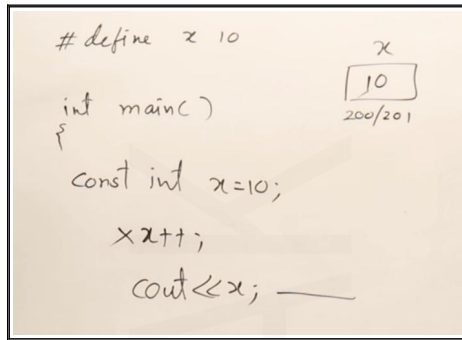 # define x 10
x
10
200/201
int main()
{
const int x=10;
×x++;
cout<<x;